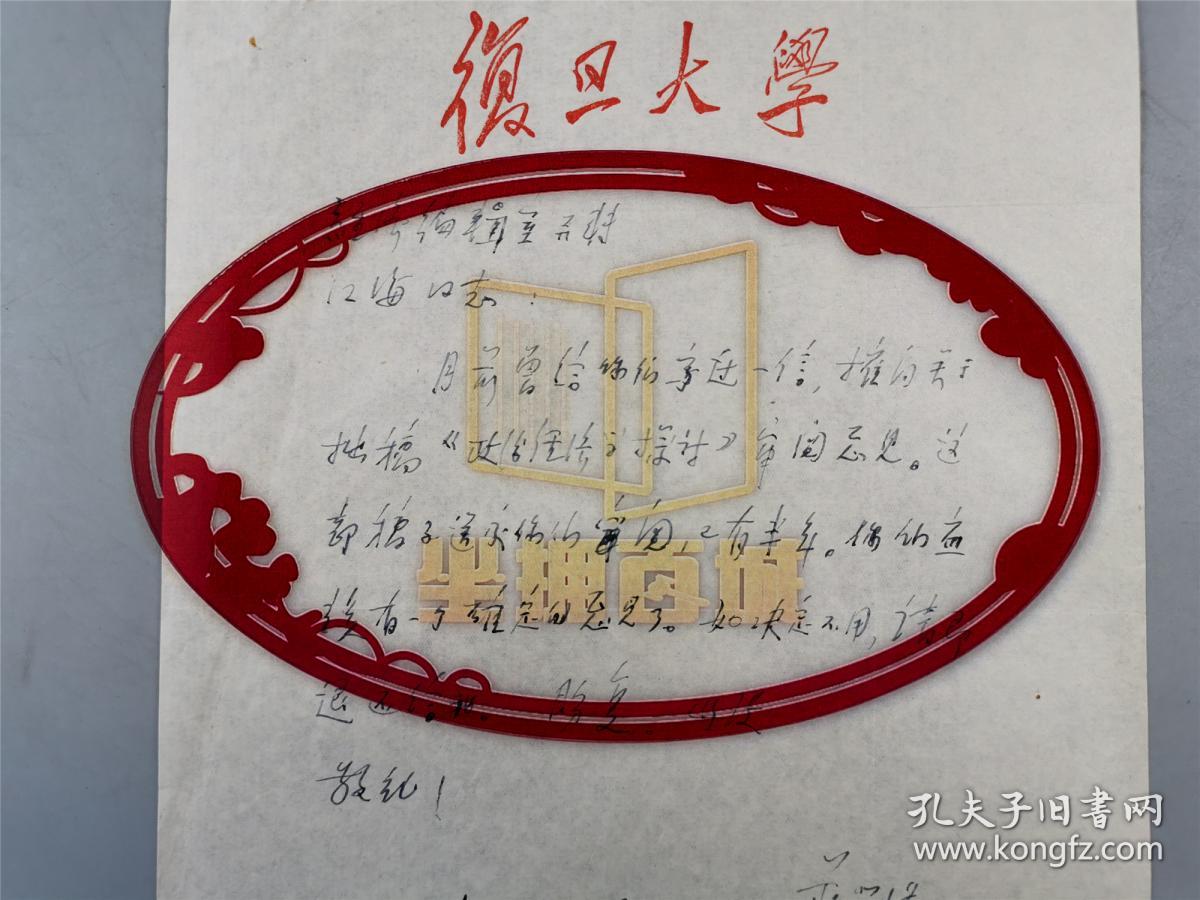 復旦大學
经济编辑室并转
江海同志：
月前曾给你们寄过一信，提到关于
拙稿《政治经济学探讨》审阅意见。这
部稿子送承你们审阅，已有半年。你们应
该有一个确定的意见了。如决定不用，请
退还给我。盼复。此致
敬礼！
孔夫子旧书网
www.kongfz.com